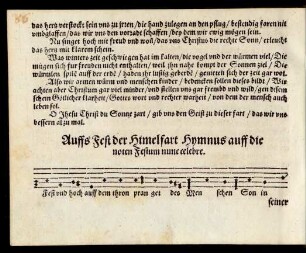 das hertz verstockt sein vns zu jrren / die hand zulegen an den pflug / bestendig faren nit
vnd glaffen / das wir vns den vorradt schaffen / bey dem wir ewig mögen sein.
Nu singet hoch mit freud vnd won / das vns Christus die rechte Son / erleucht
das hertz mit klarem schein.
Was winters zeit geschwiegen hat im kalten / die vogel vnd der würmen viel / Die
mügen sich fur freuden nicht enthalten / weil jhn nahe kompt der Sonnen ziel / Die
würmlen spilt auff der erde / haben jhr lustig geberde / gemeren sich der zeit gar wol.
Also wir armen würm vnd menschen kinder / bedencken sollen dieses bild / Wir
achten aber Christum gar viel minder / vnd stellen vns gar frembd vnd wild /
schen Göttlicher klarheit / Gottes wort vnd rechter warheit / von dem der mensch auch
leben sol.
O Jhesu Christ du Sonne zart / gib vns den Geist zu dieser fart / das wir vns
bessern al zu mal.
Auffs Fest der Himelfart Hymnus auff die
noten Festum nunc celebre.
Fest vnd hoch auff dem thron pran get des Men schen Son in
seiner